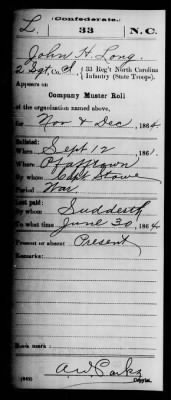 (Confederate.)
L. 33 N.C.
John H. Long
2 Sgt, Co. I, 33 Reg't North Carolina
Infantry (State Troops).
Appears on
Company Muster Roll
of the organization named above,
for Nov & Dec, 1864.
Enlisted:
When Sept 12, 1861.
Where Pfafftown
By whom Capt Stowe
Period War
Last paid:
By whom Sudderth
To what time June 30, 1864.
Present or absent Present
Remarks:
Book mark:
A.W. Parks
Copyist.